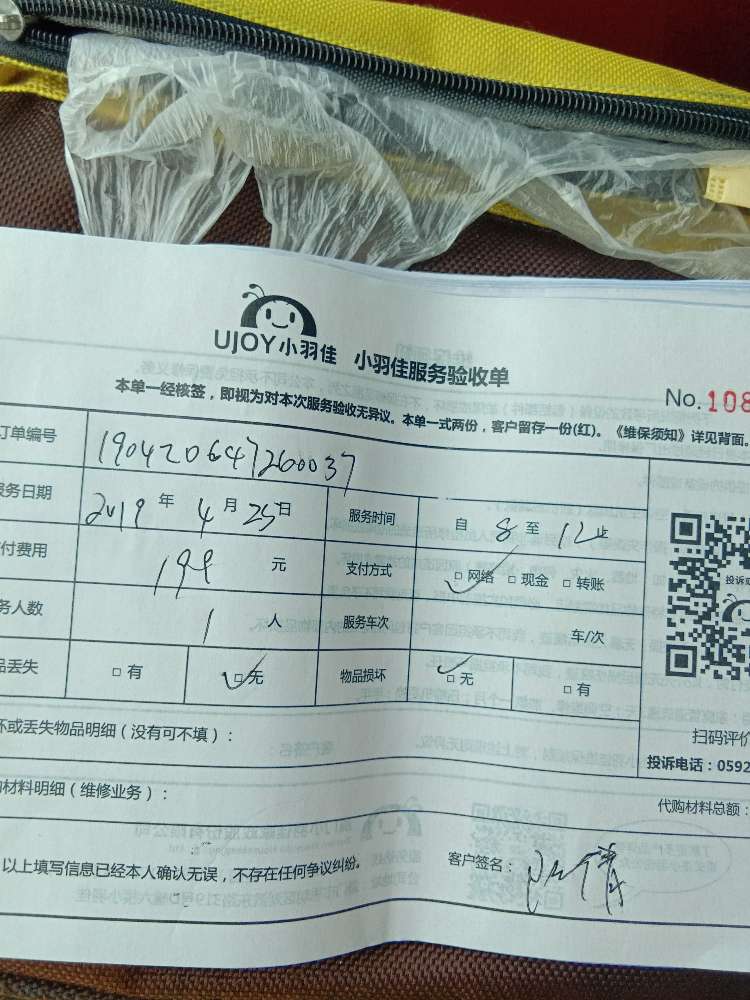 UJOY小羽佳 小羽佳服务验收单
No.108
本单一经核签，即视为对本次服务验收无异议。本单一式两份，客户留存一份(红)。《维保须知》详见背面。
订单编号 190420647260037
服务日期 2019 年 4 月 25 日 服务时间 自 8 至 12 止
付费用 199 元 支付方式 □网络 □现金 □转账
务人数 1 人 服务车次 车/次
品丢失 □有 □无 物品损坏 □无 □有
投诉
扫码评价
投诉电话：0592
坏或丢失物品明细（没有可不填）：
购材料明细（维修业务）： 代购材料总额：
以上填写信息已经本人确认无误，不存在任何争议纠纷。 客户签名：